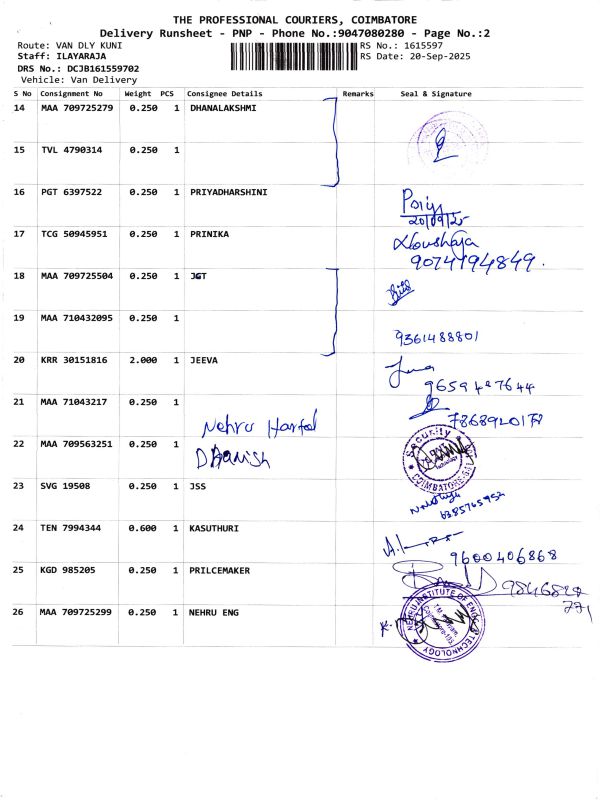 THE PROFESSIONAL COURIERS, COIMBATORE
Delivery Runsheet - PNP - Phone No.:9047080280 - Page No.:2
Route: VAN DLY KUNI
RS No.: 1615597
Staff: ILAYARAJA
RS Date: 20-Sep-2025
DRS No.: DCJB161559702
Vehicle: Van Delivery
S No Consignment No Weight PCS Consignee Details Remarks Seal & Signature
14 MAA 709725279 0.250 1 DHANALAKSHMI
15 TVL 4790314 0.250 1
16 PGT 6397522 0.250 1 PRIYADHARSHINI
20/09/25
17 TCG 50945951 0.250 1 PRINIKA
9074194849.
18 MAA 709725504 0.250 1 JGT
19 MAA 710432095 0.250 1
9361488801
20 KRR 30151816 2.000 1 JEEVA
9659427644
21 MAA 71043217 0.250 1
Nehru
22 MAA 709563251 0.250 1
Dhanish
Security
COIMBATORE
23 SVG 19508 0.250 1 JSS
6385765952
24 TEN 7994344 0.600 1 KASUTHURI
9600406868
25 KGD 985205 0.250 1 PRILCEMAKER
26 MAA 709725299 0.250 1 NEHRU ENG
NEHRU INSTITUTE OF ENGG & TECHNOLOGY